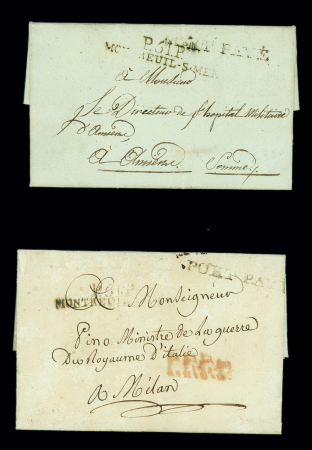 P.61.P.
PORT PAYÉ
MONTREUIL-S-MER
à Monsieur
Le Directeur de l'hopital Militaire
d'Amiens
à Amiens Somme
PORT PAYÉ
MONTREUIL
Monseigneur
Pino Ministre de la guerre
Du Royaume d'italie
a Milan